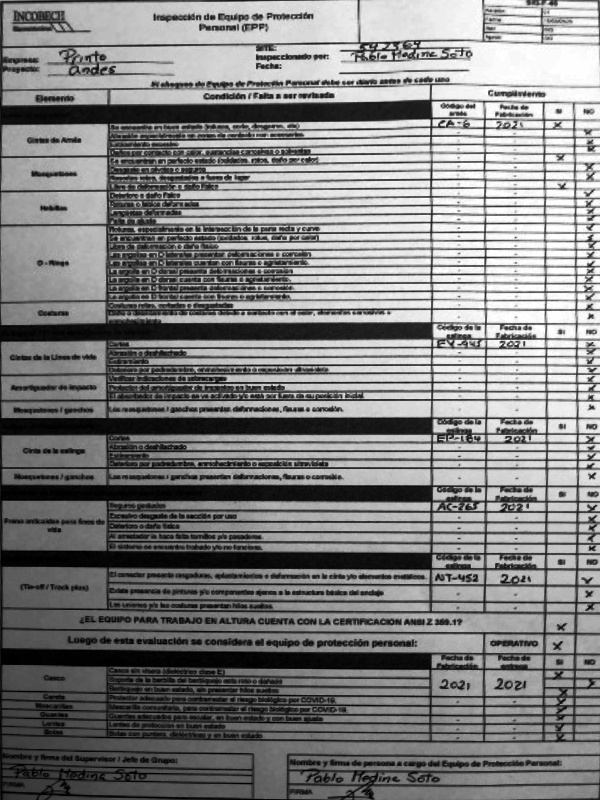 INCOBECH
Inspección de Equipo de Protección
Personal (EPP)
SIG-F-46
Empresa: Printo
Proyecto: Andes
SITE: 542364
Inspeccionado por: Pablo Medina Soto
Fecha:
El chequeo de Equipo de Protección Personal debe ser diario antes de cada uso
Elemento Condición / Falta a ser revisada Cumplimiento
Código del arnés Fecha de Fabricación SI NO
Cintas de Arnés
Se encuentra en buen estado
CA-6 2021 X
Mosquetones
Se encuentran en perfecto estado (oxidados, rotos, daño por calor)
Desgaste en pivotes o seguros
Libre de deformación o daño físico
Hebillas
Deterioro o daño físico
Roturas o bordes deformados
Lengüetas deformadas
Falta de ajuste
O - Rings
Roturas, especialmente en la intersección de la parte recta y curva
Se encuentran en perfecto estado (oxidados, rotos, daño por calor)
Libre de deformación o daño físico
Las argollas en D laterales presentan deformaciones o corrosión
Las argollas en D laterales cuentan con fisuras o agrietamiento.
La argolla en D dorsal presenta deformaciones o corrosión
La argolla en D dorsal cuenta con fisuras o agrietamiento.
La argolla en D frontal presenta deformaciones o corrosión.
La argolla en D frontal cuenta con fisuras o agrietamiento.
Costuras
Costuras rotas, cortadas o desgastadas
Código de la eslinga Fecha de Fabricación SI NO
Cintas de la Línea de vida
Cortes
EY-945 2021 X
Abrasión o deshilachado
Estiramiento
Deterioro por podredumbre, enmohecimiento o exposición ultravioleta
Amortiguador de impacto
Verificar indicaciones de sobrecargas
Protector del amortiguador de impactos en buen estado
El absorbedor de impacto se ve activado y/o está por fuera de su posición inicial.
Mosquetones / ganchos
Los mosquetones / ganchos presentan deformaciones, fisuras o corrosión.
Código de la eslinga Fecha de Fabricación SI NO
Cinta de la eslinga
Cortes
EP-184 2021 X
Abrasión o deshilachado
Estiramiento
Deterioro por podredumbre, enmohecimiento o exposición ultravioleta
Mosquetones / ganchos
Los mosquetones / ganchos presentan deformaciones, fisuras o corrosión.
Código de la eslinga Fecha de Fabricación SI NO
Freno anticaídas para líneas de vida
Seguros gastados
AC-265 2021 X
Excesivo desgaste de la sección por uso
Deterioro o daño físico
Al arrestador le hace falta tornillos y/o pasadores.
El sistema se encuentra trabado y/o no funciona.
Código de la eslinga Fecha de Fabricación SI NO
(Tie-off / Track plus)
El conector presenta rasgaduras, aplastamientos o deformación en la cinta y/o elementos metálicos.
NT-452 2021
Existe presencia de pinturas y/o componentes ajenos a la estructura básica del anclaje
Las uniones y/o las costuras presentan hilos sueltos.
¿EL EQUIPO PARA TRABAJO EN ALTURA CUENTA CON LA CERTIFICACION ANSI Z 359.1? X
Luego de esta evaluación se considera el equipo de protección personal: OPERATIVO X
Fecha de Fabricación Fecha de entrega SI NO
Casco
Casco sin visera (dieléctrico clase E)
Soporte de la barbilla del barbiquejo esta roto o dañado
2021 2021
Barbiquejo en buen estado, sin presentar hilos sueltos
Careta
Protector adecuado para contrarrestar el riesgo biológico por COVID-19.
Mascarillas
Mascarilla comunitaria, para contrarrestar el riesgo biológico por COVID-19.
Guantes
Guantes adecuados para escalar, en buen estado y con buen ajuste
Lentes
Lentes de protección en buen estado
Botas
Botas con puntera, dieléctricos y en buen estado
Nombre y firma del Supervisor / Jefe de Grupo:
Pablo Medina Soto
FIRMA
Nombre y firma de persona a cargo del Equipo de Protección Personal:
Pablo Medina Soto
FIRMA